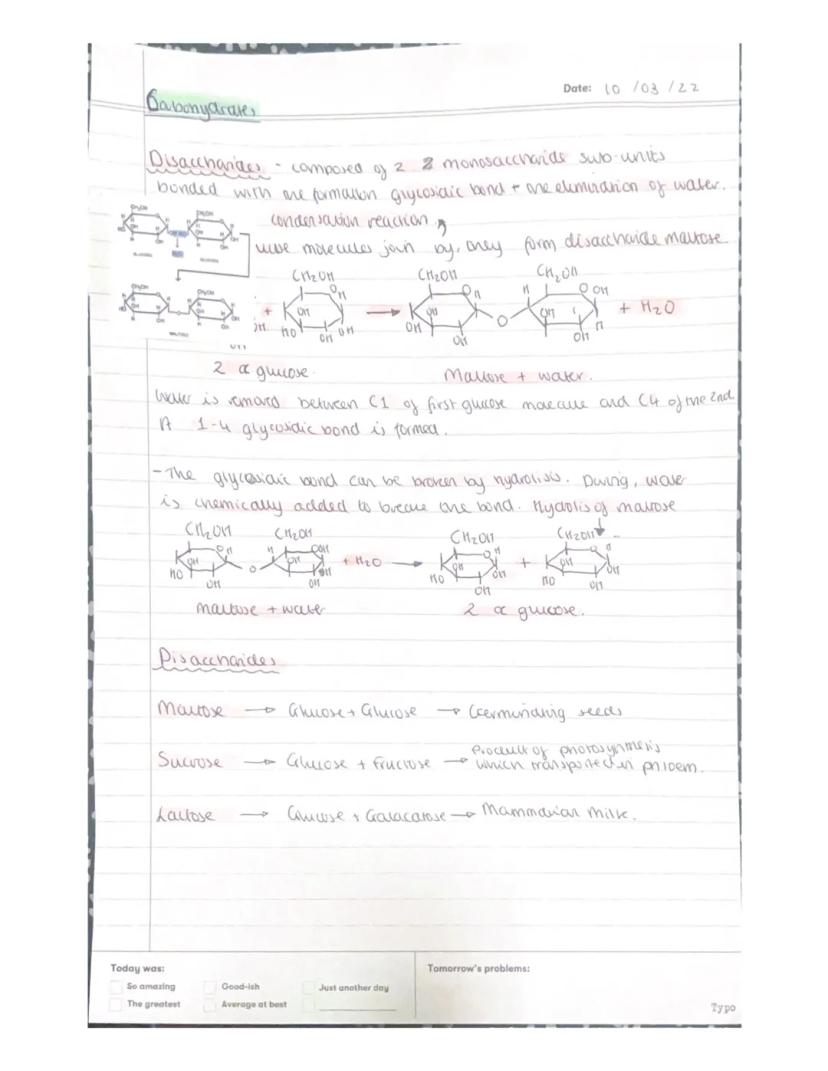 Date: 10 / 03 / 22
Carbohydrates
Disaccharides - composed of 2 monosaccharide sub-units
bonded with one formation glycosidic bond + one elimination of water.
condensation reaction
molecules join by, they form disaccharide maltose
CH2OH CH2OH CH2OH
+ H OH HO OH OH → H OH OH OH O H OH OH OH H + H2O
2 α glucose. Maltose + water.
Water is removed between C1 of first glucose molecule and C4 of the 2nd
A 1-4 glycosidic bond is formed.
- The glycosidic bond can be broken by hydrolisis. During, water
is chemically added to break the bond. Hydrolis of maltose
CH2OH CH2OH CH2OH CH2OH
HO OH H OH O H OH OH OH + H2O → HO OH H OH OH + HO OH H OH OH
maltose + water 2 α glucose.
Disaccharides
Maltose → Glucose + Glucose → Germinating seeds
Sucrose → Glucose + Fructose → Product of photosynthesis
which transported in phloem.
Lactose → Glucose + Galacatose → Mammarian milk.
Today was:
So amazing Good-ish Just another day
The greatest Average at best
Tomorrow's problems:
Typo